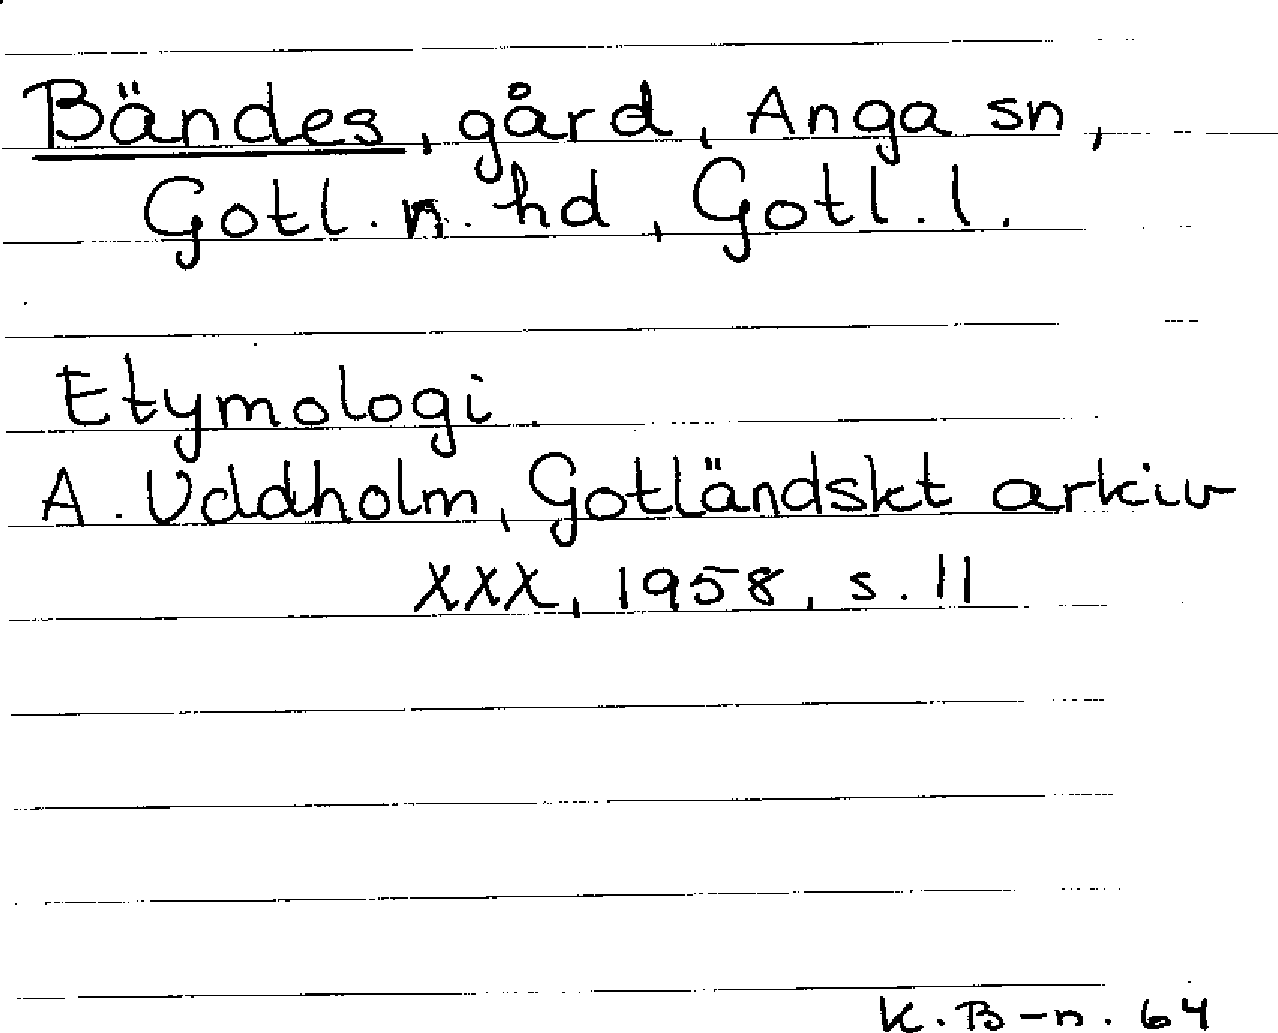 Bändes, gård, Anga sn,
Gotl. n. hd, Gotl. l.
Etymologi
A. Uddholm, Gotländskt arkiv
XXX, 1958, s. 11
K. B-n. 64